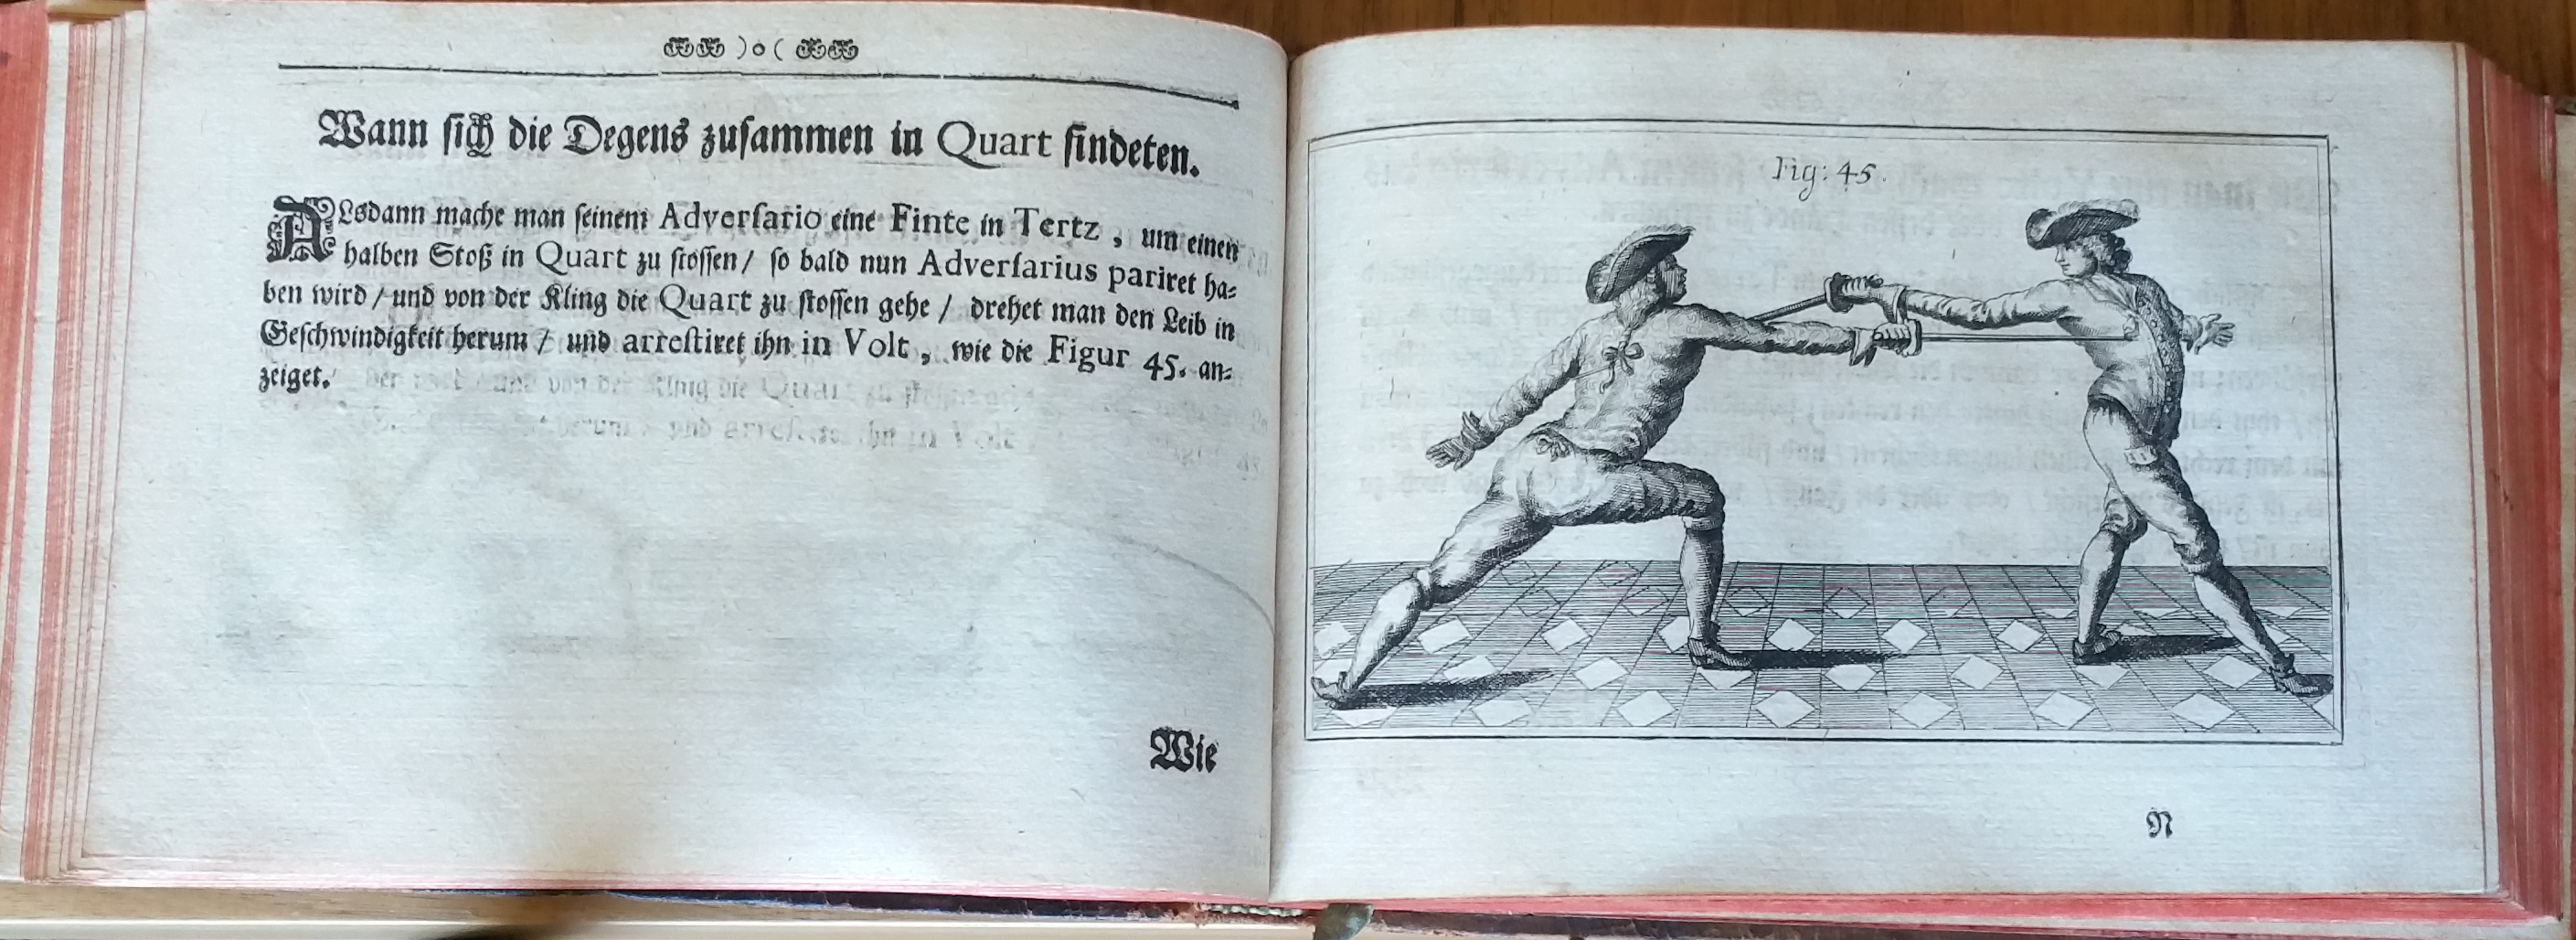 )o(
Wann sich die Degens zusammen in Quart findeten.
ALsdann mache man seinem Adversario eine Finte in Tertz, um einen
halben Stoß in Quart zu stossen / so bald nun Adversarius pariret ha-
ben wird / und von der Kling die Quart zu stossen gehe / drehet man den Leib in
Geschwindigkeit herum / und arrestiret ihn in Volt, wie die Figur 45. an-
zeiget.
Wie
Fig: 45.
N